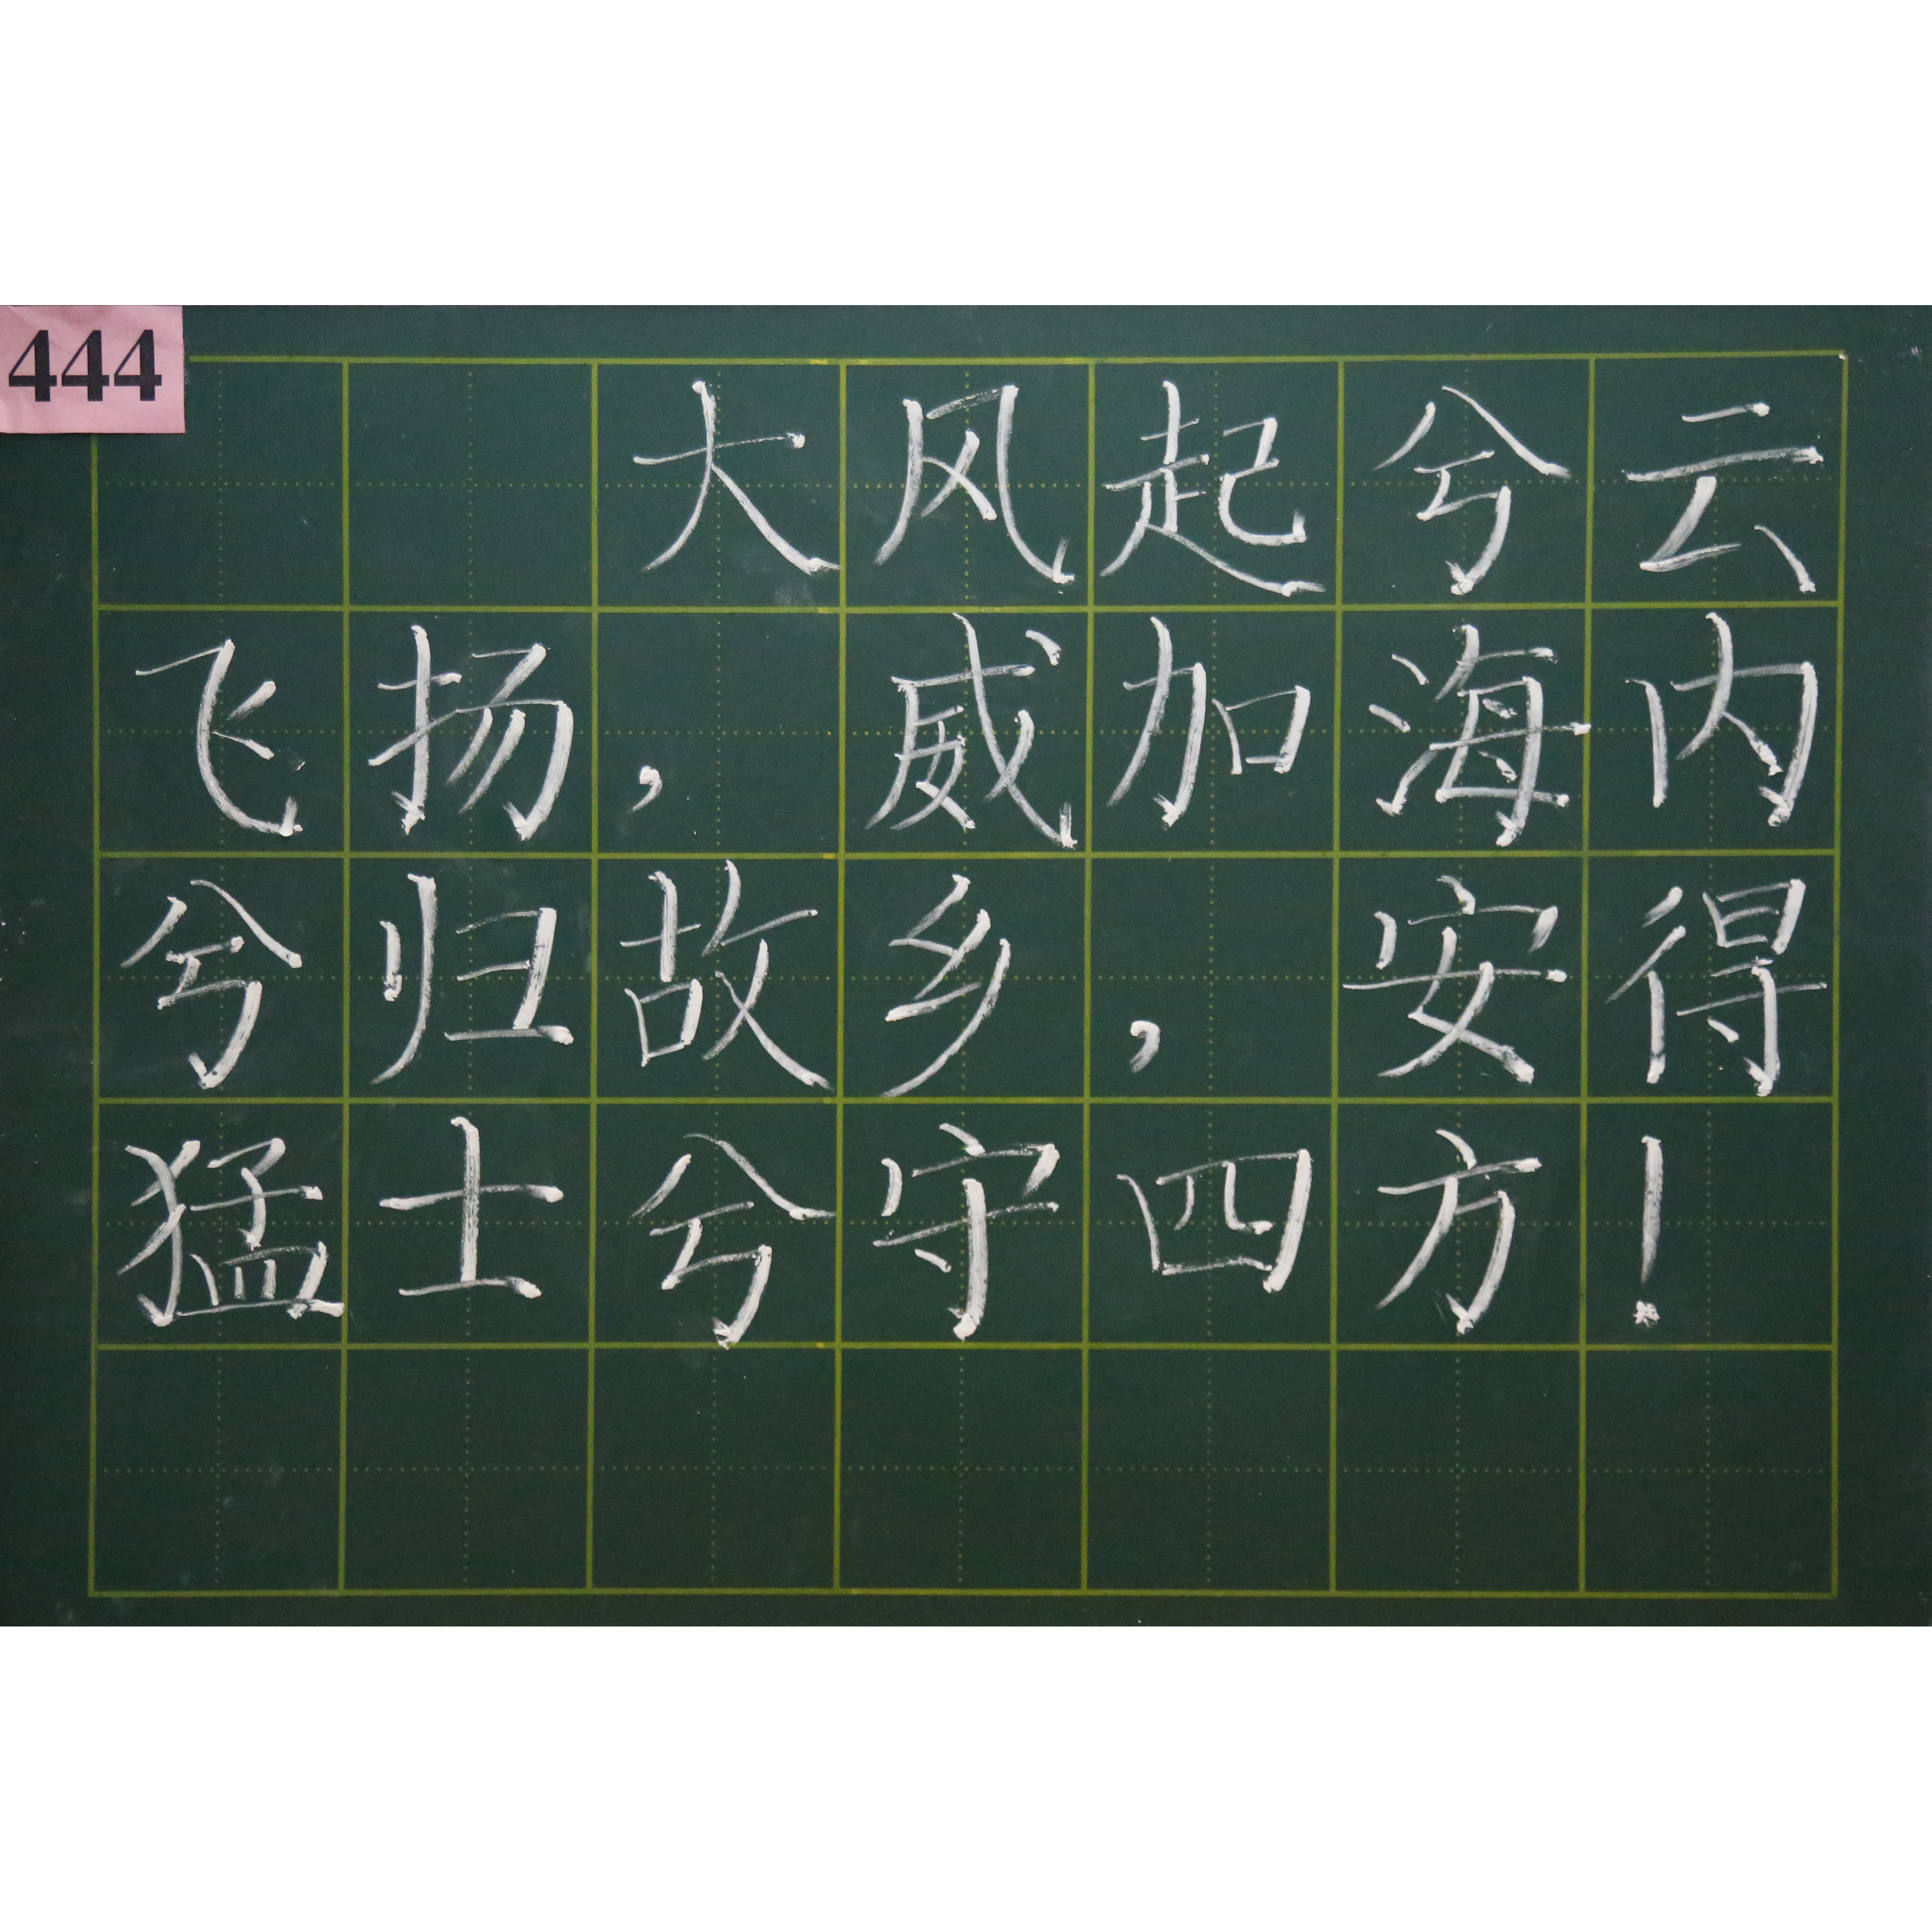 444
大风起兮云
飞扬，威加海内
兮归故乡，安得
猛士兮守四方！